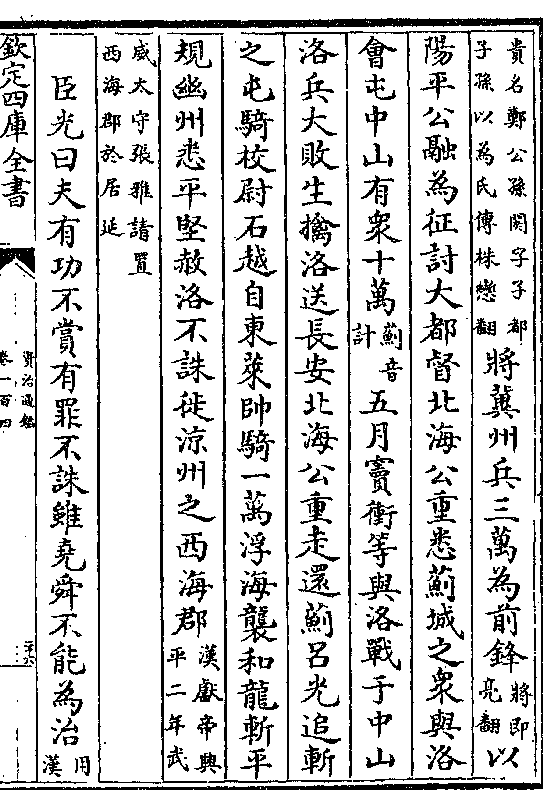 貴名鄭公孫閼字子都
子孫以為氏傳株戀翻
將冀州兵三萬為前鋒
將即
亮翻
以
陽平公融為征討大都督北海公重悉薊城之衆與洛
會屯中山有衆十萬
薊音
計
五月竇衝等與洛戰于中山
洛兵大敗生擒洛送長安北海公重走還薊呂光追斬
之屯騎校尉石越自東萊帥騎一萬浮海襲和龍斬平
規幽州悉平堅赦洛不誅徙涼州之西海郡
漢獻帝興
平二年武
威太守張雅請置
西海郡於居延
臣光曰夫有功不賞有罪不誅雖堯舜不能為治
用
漢
欽定四庫全書
資治通鑑
卷一百四
二十六